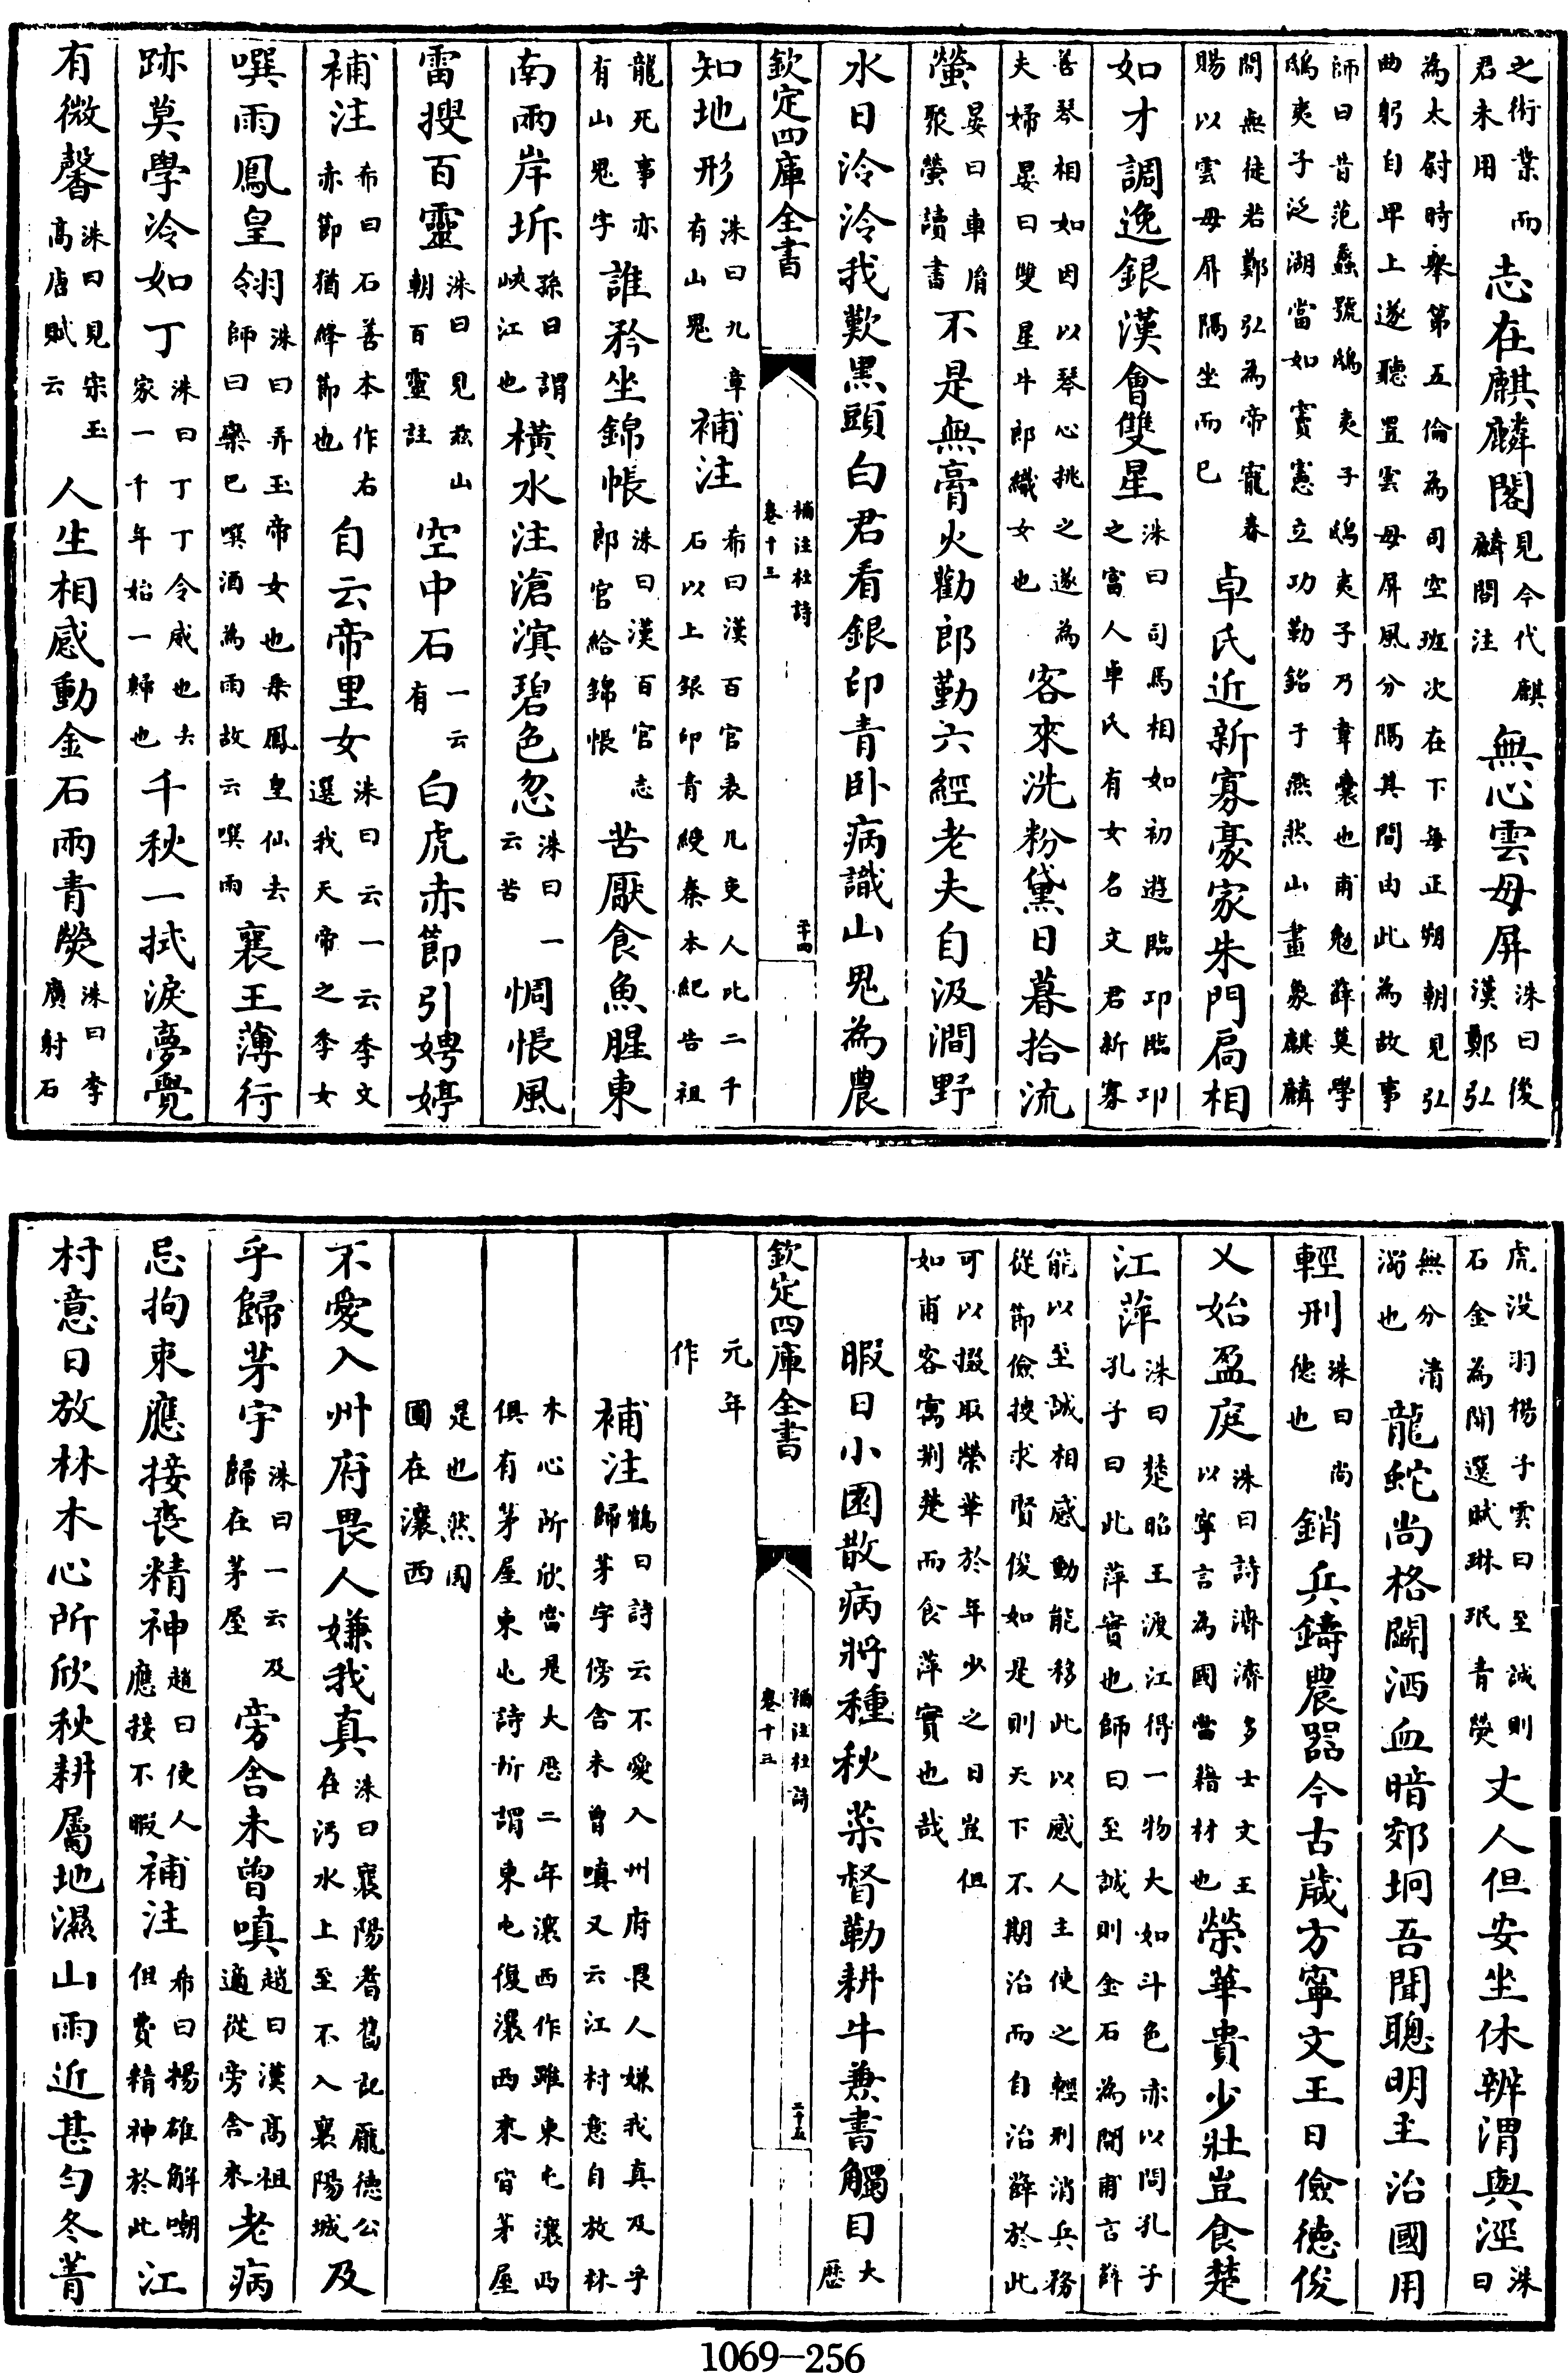 之術業而君未用志在麒麟閣見今代麒麟閣注無心雲母屏洙曰後漢鄭弘
為太尉時舉第五倫為司空班次在下每正朔朝見弘曲躬自卑上遂聽置雲母屏風分隔其間由此為故事
師曰昔范蠡號鴟夷子鴟夷子乃韋囊也甫勉薛莫學鴟夷子泛湖當如竇憲立功勒銘于燕然山畫象麒麟
閣無徒若鄭弘為帝寵眷賜以雲母屏隔坐而已卓氏近新寡豪家朱門扃相
如才調逸銀漢會雙星洙曰司馬相如初遊臨邛臨邛之富人卓氏有女名文君新寡
善琴相如因以琴心挑之遂為夫婦晏曰雙星牛郎織女也客來洗粉黛日暮拾流
螢晏曰車胤聚螢讀書不是無膏火勸郎勤六經老夫自汲澗野
水日泠泠我歎黑頭白君看銀印青卧病識山鬼為農
欽定四庫全書
補注杜詩
卷十三
二十四
知地形洙曰九章有山鬼補注布曰漢百官表凡吏人比二千石以上銀印青綬秦本紀告祖
龍死事亦有山鬼字誰矜坐錦帳洙曰漢百官志郎官給錦帳苦厭食魚腥東
南兩岸坼孫曰謂峽江也橫水注滄溟碧色忽洙曰一云苦惆悵風
雷搜百靈洙曰見茲山朝百靈註空中石一云有白虎赤節引娉婷
補注布曰石善本作右赤節猶絳節也自云帝里女洙曰云一云季文選我天帝之季女
噀雨鳳皇翎洙曰弄玉帝女也乘鳳皇仙去師曰欒巴噀酒為雨故云噀雨襄王薄行
跡莫學冷如丁洙曰丁丁令威也去家一千年始一歸也千秋一拭淚夢覺
有微馨洙曰見宋玉高唐賦云人生相感動金石兩青熒洙曰李廣射石
虎没羽楊子雲曰至誠則石金為開選賦琳珉青熒丈人但安坐休辨渭與涇洙曰
無分清濁也龍蛇尚格鬬洒血暗郊坰吾聞聰明主治國用
輕刑洙曰尚德也銷兵鑄農器今古歲方寧文王日儉德俊
乂始盈庭洙曰詩濟濟多士文王以寧言為國當藉材也榮華貴少壯豈食楚
江萍洙曰楚昭王渡江得一物大如斗色赤以問孔子孔子曰此萍實也師曰至誠則金石為開甫言薛
能以至誠相感動能移此以感人主使之輕刑消兵務從節儉搜求賢俊如是則天下不期治而自治薛於此
可以掇取榮華於年少之日豈但如甫客寓荆楚而食萍實也哉
暇日小園散病將種秋菜督勒耕牛兼書觸目大歷
欽定四庫全書
補注杜詩
卷十三
二十五
元年作
補注鶴曰詩云不愛入州府畏人嫌我真及乎歸茅宇傍舍未曾嗔又云江村意自放林
木心所欣當是大歷二年瀼西作雖東屯瀼西俱有茅屋東屯詩所謂東屯復瀼西來宿茅屋
是也然園圃在瀼西
不愛入州府畏人嫌我真洙曰襄陽耆舊記龐德公在沔水上至不入襄陽城及
乎歸茅宇洙曰一云及歸在茅屋旁舍未曾嗔趙曰漢高祖適從旁舍來老病
忌拘束應接喪精神趙曰使人應接不暇補注布曰揚雄解嘲但費精神於此江
村意日放林木心所欣秋耕屬地濕山雨近甚勻冬菁
1069-256